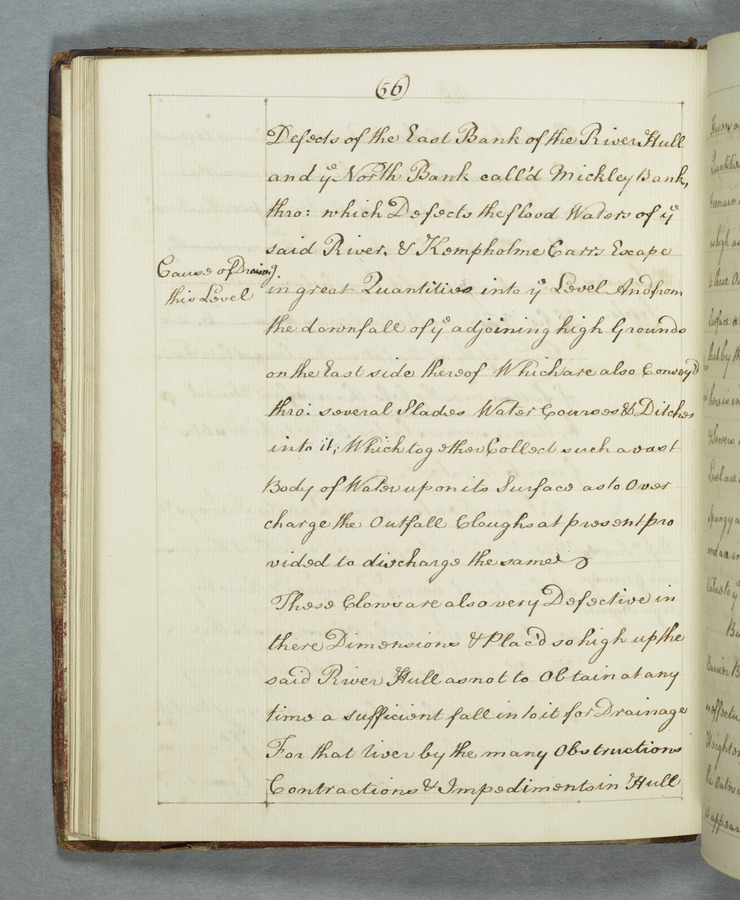 (56)
Defects of the East Bank of the River Hull
and yᵉ North Bank call'd Mickley Bank,
thro: which Defects the flood Waters of yᵉ
said River, & Kempholme Carrs Escape
Cause of Draing.
this Level
in great Quantities into yᵉ Level And from
the downfall of yᵉ adjoining high Grounds
on the East side thereof Which are also Convey'd
thro: several Slades Water Courses & Ditches
into it; Which together Collect such a vast
Body of Water upon its Surface as to Over
charge the Outfall Cloughs at present pro
vided to discharge the same
These Clows are also very Defective in
there Dimensions & Plac'd so high up the
said River Hull as not to Obtain at any
time a sufficient fall into it for Drainage
For that River by the many Obstructions
Contractions & Impediments in Hull